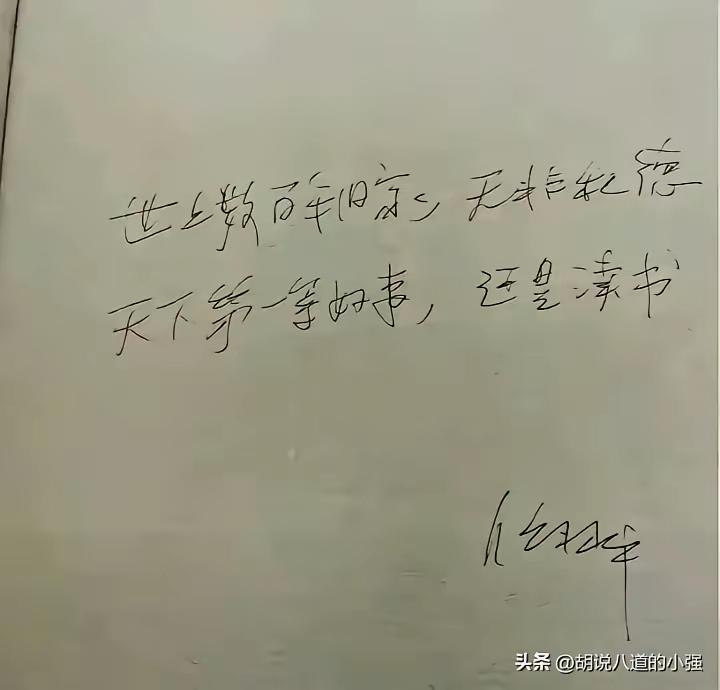 世上数百年旧家，无非积德
天下第一等好事，还是读书
头条 @胡说八道的小强